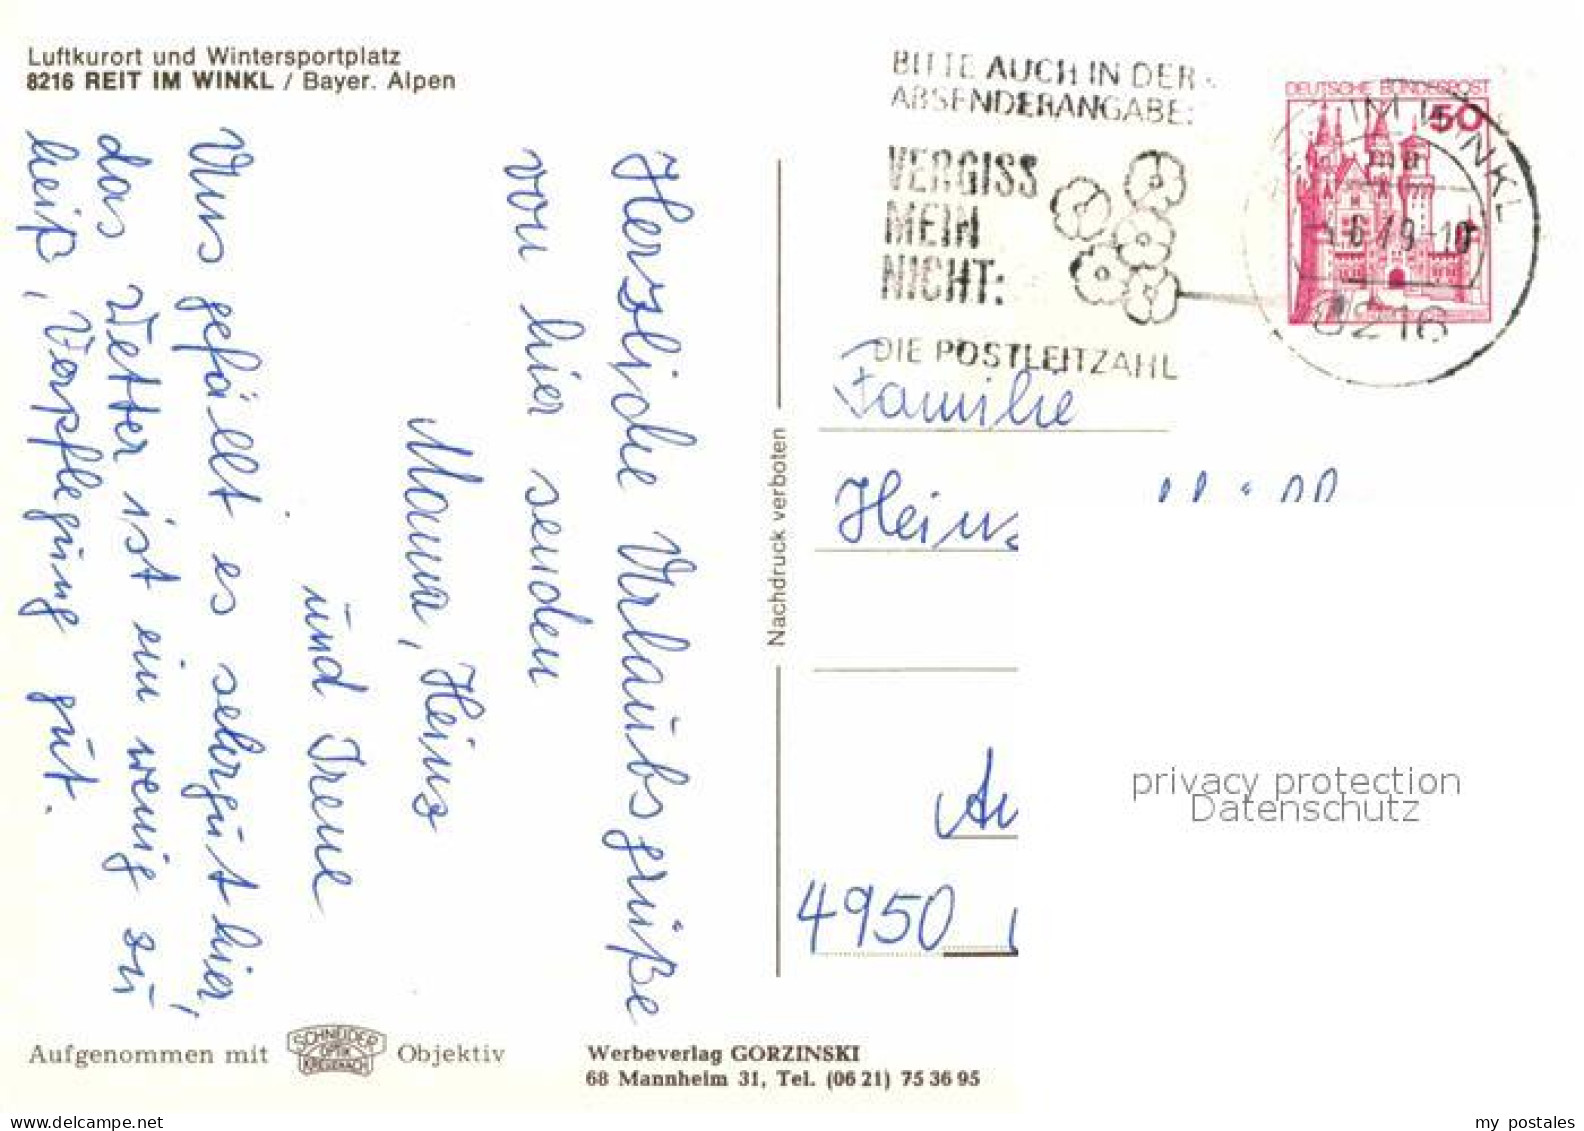 Luftkurort und Wintersportplatz
8216 REIT IM WINKL / Bayer. Alpen
Herzliche Urlaubsgrüße
von hier senden
Mama, Heinz
und Irene
Uns gefällt es sehr gut hier,
das Wetter ist ein wenig zu
heiß, Verpflegung gut.
Nachdruck verboten
BITTE AUCH IN DER
ABSENDERANGABE:
VERGISS
MEIN
NICHT:
DIE POSTLEITZAHL
DEUTSCHE BUNDESPOST
50
IM WINKL
6.79-10
8216
Familie
Hein
4950
privacy protection
Datenschutz
Aufgenommen mit SCHNEIDER OPTIK KREUZNACH Objektiv
Werbeverlag GORZINSKI
68 Mannheim 31, Tel. (06 21) 75 36 95
delcampe.net
my postales